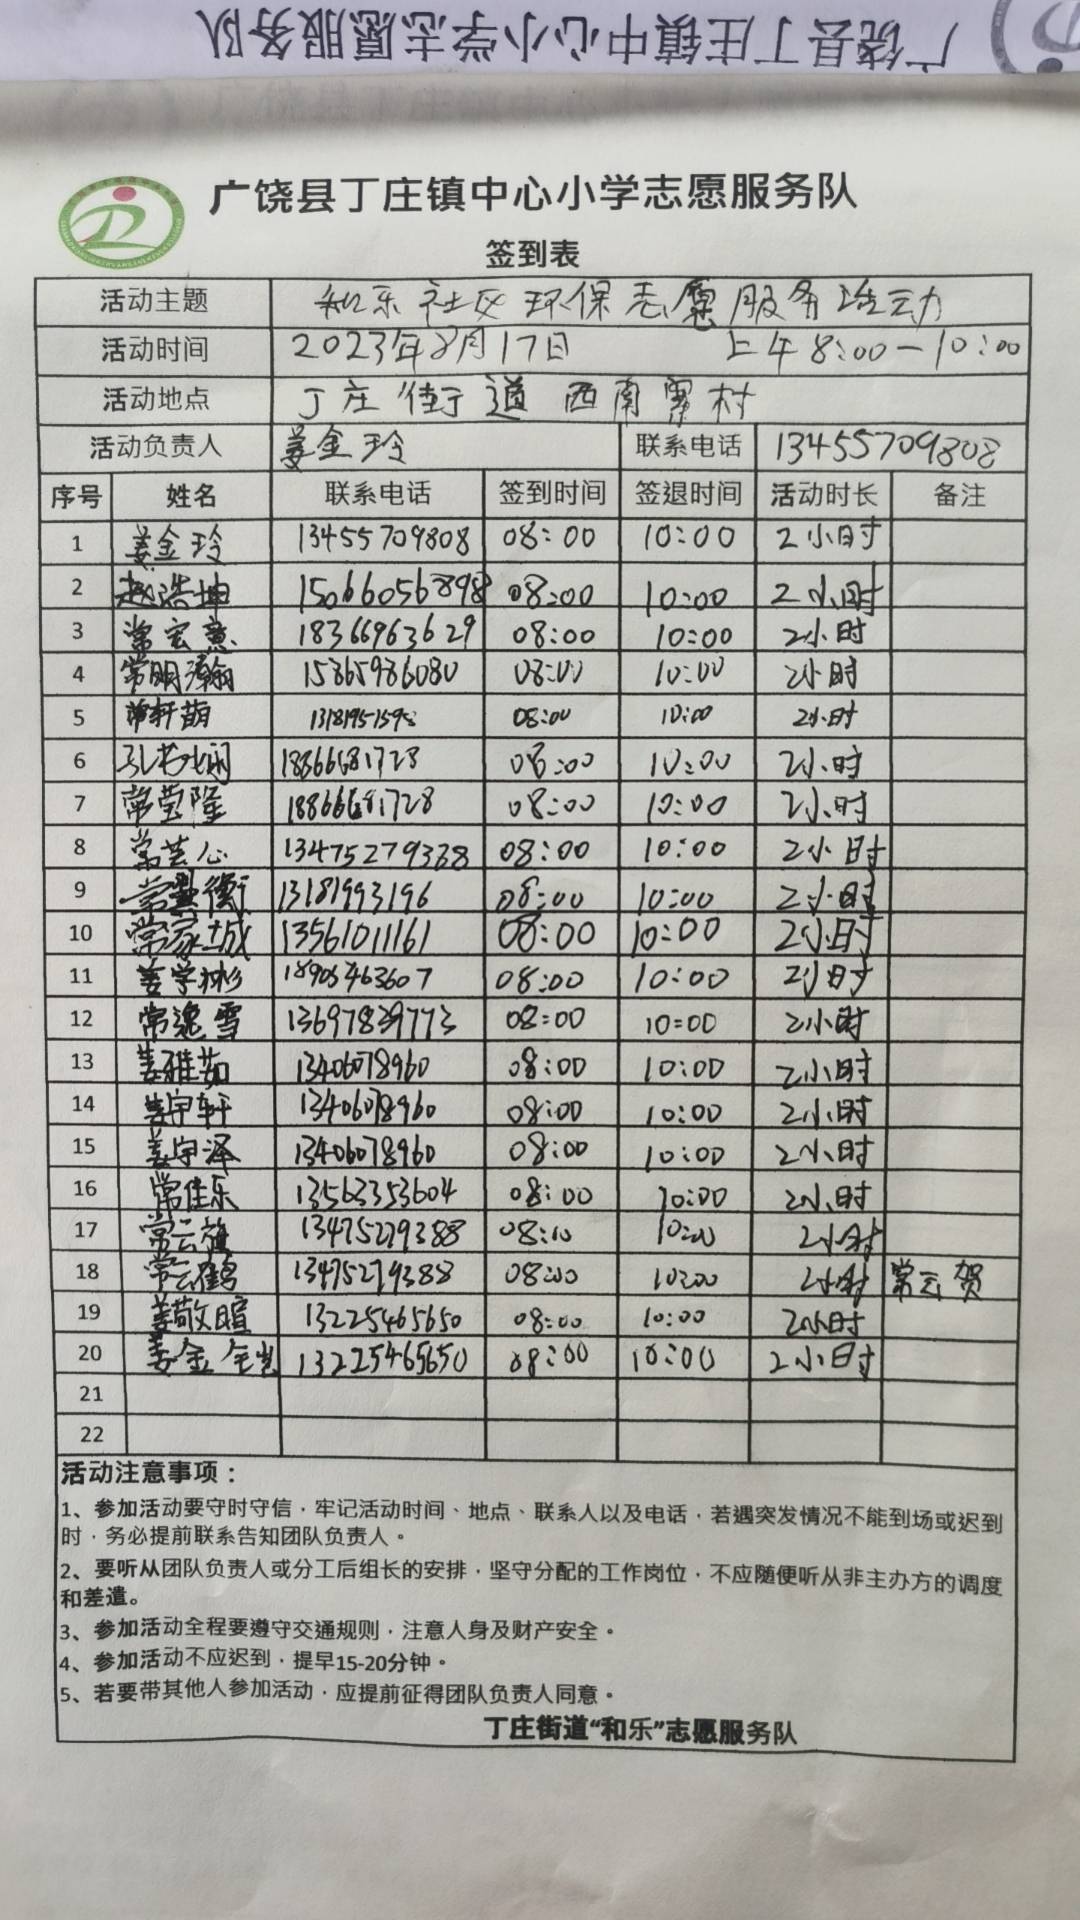 广饶县丁庄镇中心小学志愿服务队
广饶县丁庄镇中心小学志愿服务队
签到表
活动主题 和乐社区环保志愿服务活动
活动时间 2023年8月17日 上午8:00—10:00
活动地点 丁庄街道西南寨村
活动负责人 姜金玲 联系电话 13455709808
序号 姓名 联系电话 签到时间 签退时间 活动时长 备注
1 姜金玲 13455709808 08:00 10:00 2小时
2 赵浩坤 15066056898 08:00 10:00 2小时
3 常宏意 18366963629 08:00 10:00 2小时
4 常明瀚 15865986080 08:00 10:00 2小时
5 常轩萌 13181951598 08:00 10:00 2小时
6 18866681728 08:00 10:00 2小时
7 常莹隆 18866681728 08:00 10:00 2小时
8 常芸心 13475279388 08:00 10:00 2小时
9 13181993196 08:00 10:00 2小时
10 常家城 13561011161 08:00 10:00 2小时
11 姜学彬 18905463607 08:00 10:00 2小时
12 常逸雪 13697839773 08:00 10:00 2小时
13 姜雅茹 13406078960 08:00 10:00 2小时
14 姜宇轩 13406078960 08:00 10:00 2小时
15 姜宇泽 13406078960 08:00 10:00 2小时
16 常佳乐 13563353604 08:00 10:00 2小时
17 常云旗 13475279388 08:00 10:00 2小时
18 常云鹤 13475279388 08:00 10:00 2小时 常云贺
19 姜敬暄 13225465650 08:00 10:00 2小时
20 13225465650 08:00 10:00 2小时
21
22
活动注意事项：
1、参加活动要守时守信，牢记活动时间、地点、联系人以及电话，若遇突发情况不能到场或迟到
时，务必提前联系告知团队负责人。
2、要听从团队负责人或分工后组长的安排，坚守分配的工作岗位，不应随便听从非主办方的调度
和差遣。
3、参加活动全程要遵守交通规则，注意人身及财产安全。
4、参加活动不应迟到，提早15-20分钟。
5、若要带其他人参加活动，应提前征得团队负责人同意。
丁庄街道“和乐”志愿服务队